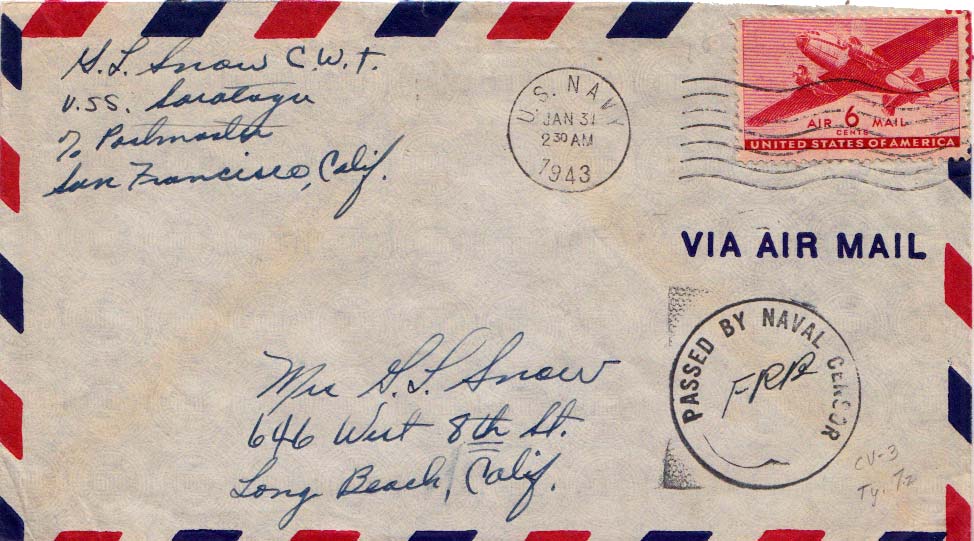 G. L. Snow C.W.T.
U.S.S. Saratoga
% Postmaster
San Francisco, Calif.
U.S. NAVY
JAN 31
2 30 AM
1943
AIR 6 MAIL
CENTS
UNITED STATES OF AMERICA
VIA AIR MAIL
PASSED BY NAVAL CENSOR
Mrs G. L. Snow
646 West 8th St.
Long Beach, Calif.
CV-3